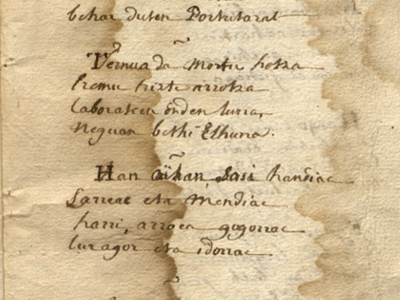 behar duten Portutarat
Ternua da mortu hotza
Eremu triste arrotza
laboratcen onden lurra,
Neguan bethi Elhurra.
Han oihan, Sasi handiac
Larreac eta Mendiac
harri, arroca gogorrac
lur agor eta idorrac